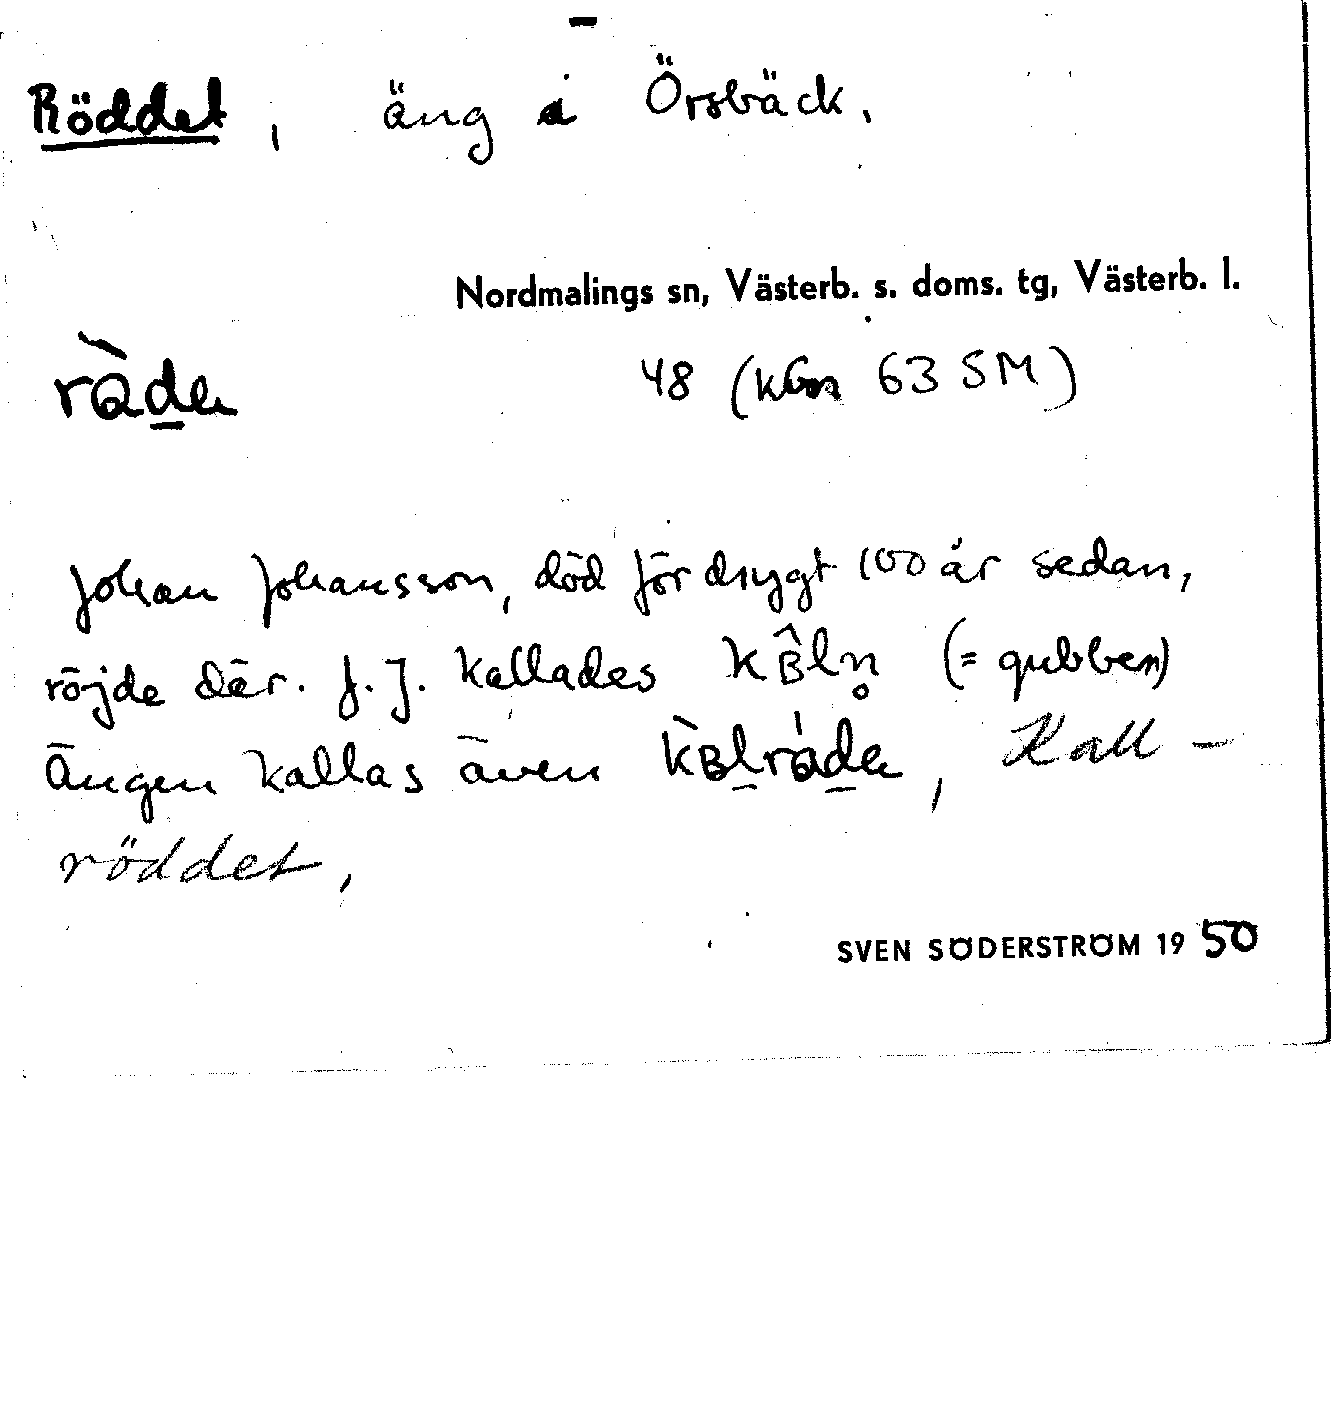 Röddet, äng i Örsbäck.
Nordmalings sn, Västerb. s. doms. tg, Västerb. l.
48 (kGn 63 SM)
Johan Johansson, död för drygt 100 år sedan,
röjde där. J. J. kallades (= gubben)
Ängen kallas även , Kall-
röddet,
SVEN SÖDERSTRÖM 1950